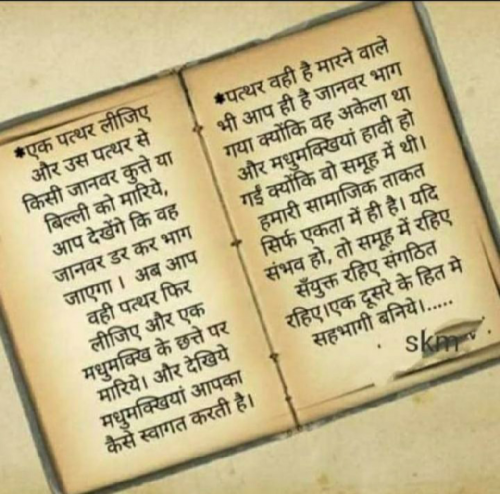 *एक पत्थर लीजिए
और उस पत्थर से
किसी जानवर कुत्ते या
बिल्ली को मारिये,
आप देखेंगे कि वह
जानवर डर कर भाग
जाएगा । अब आप
वही पत्थर फिर
लीजिए और एक
मधुमक्खि के छत्ते पर
मारिये। और देखिये
मधुमक्खियां आपका
कैसे स्वागत करती है।
*पत्थर वही है मारने वाले
भी आप ही है जानवर भाग
गया क्योंकि वह अकेला था
और मधुमक्खियां हावी हो
गई क्योंकि वो समूह में थी।
हमारी सामाजिक ताकत
सिर्फ एकता में ही है। यदि
संभव हो, तो समूह में रहिए
सँयुक्त रहिए संगठित
रहिए।एक दूसरे के हित मे
सहभागी बनिये।.....
skm